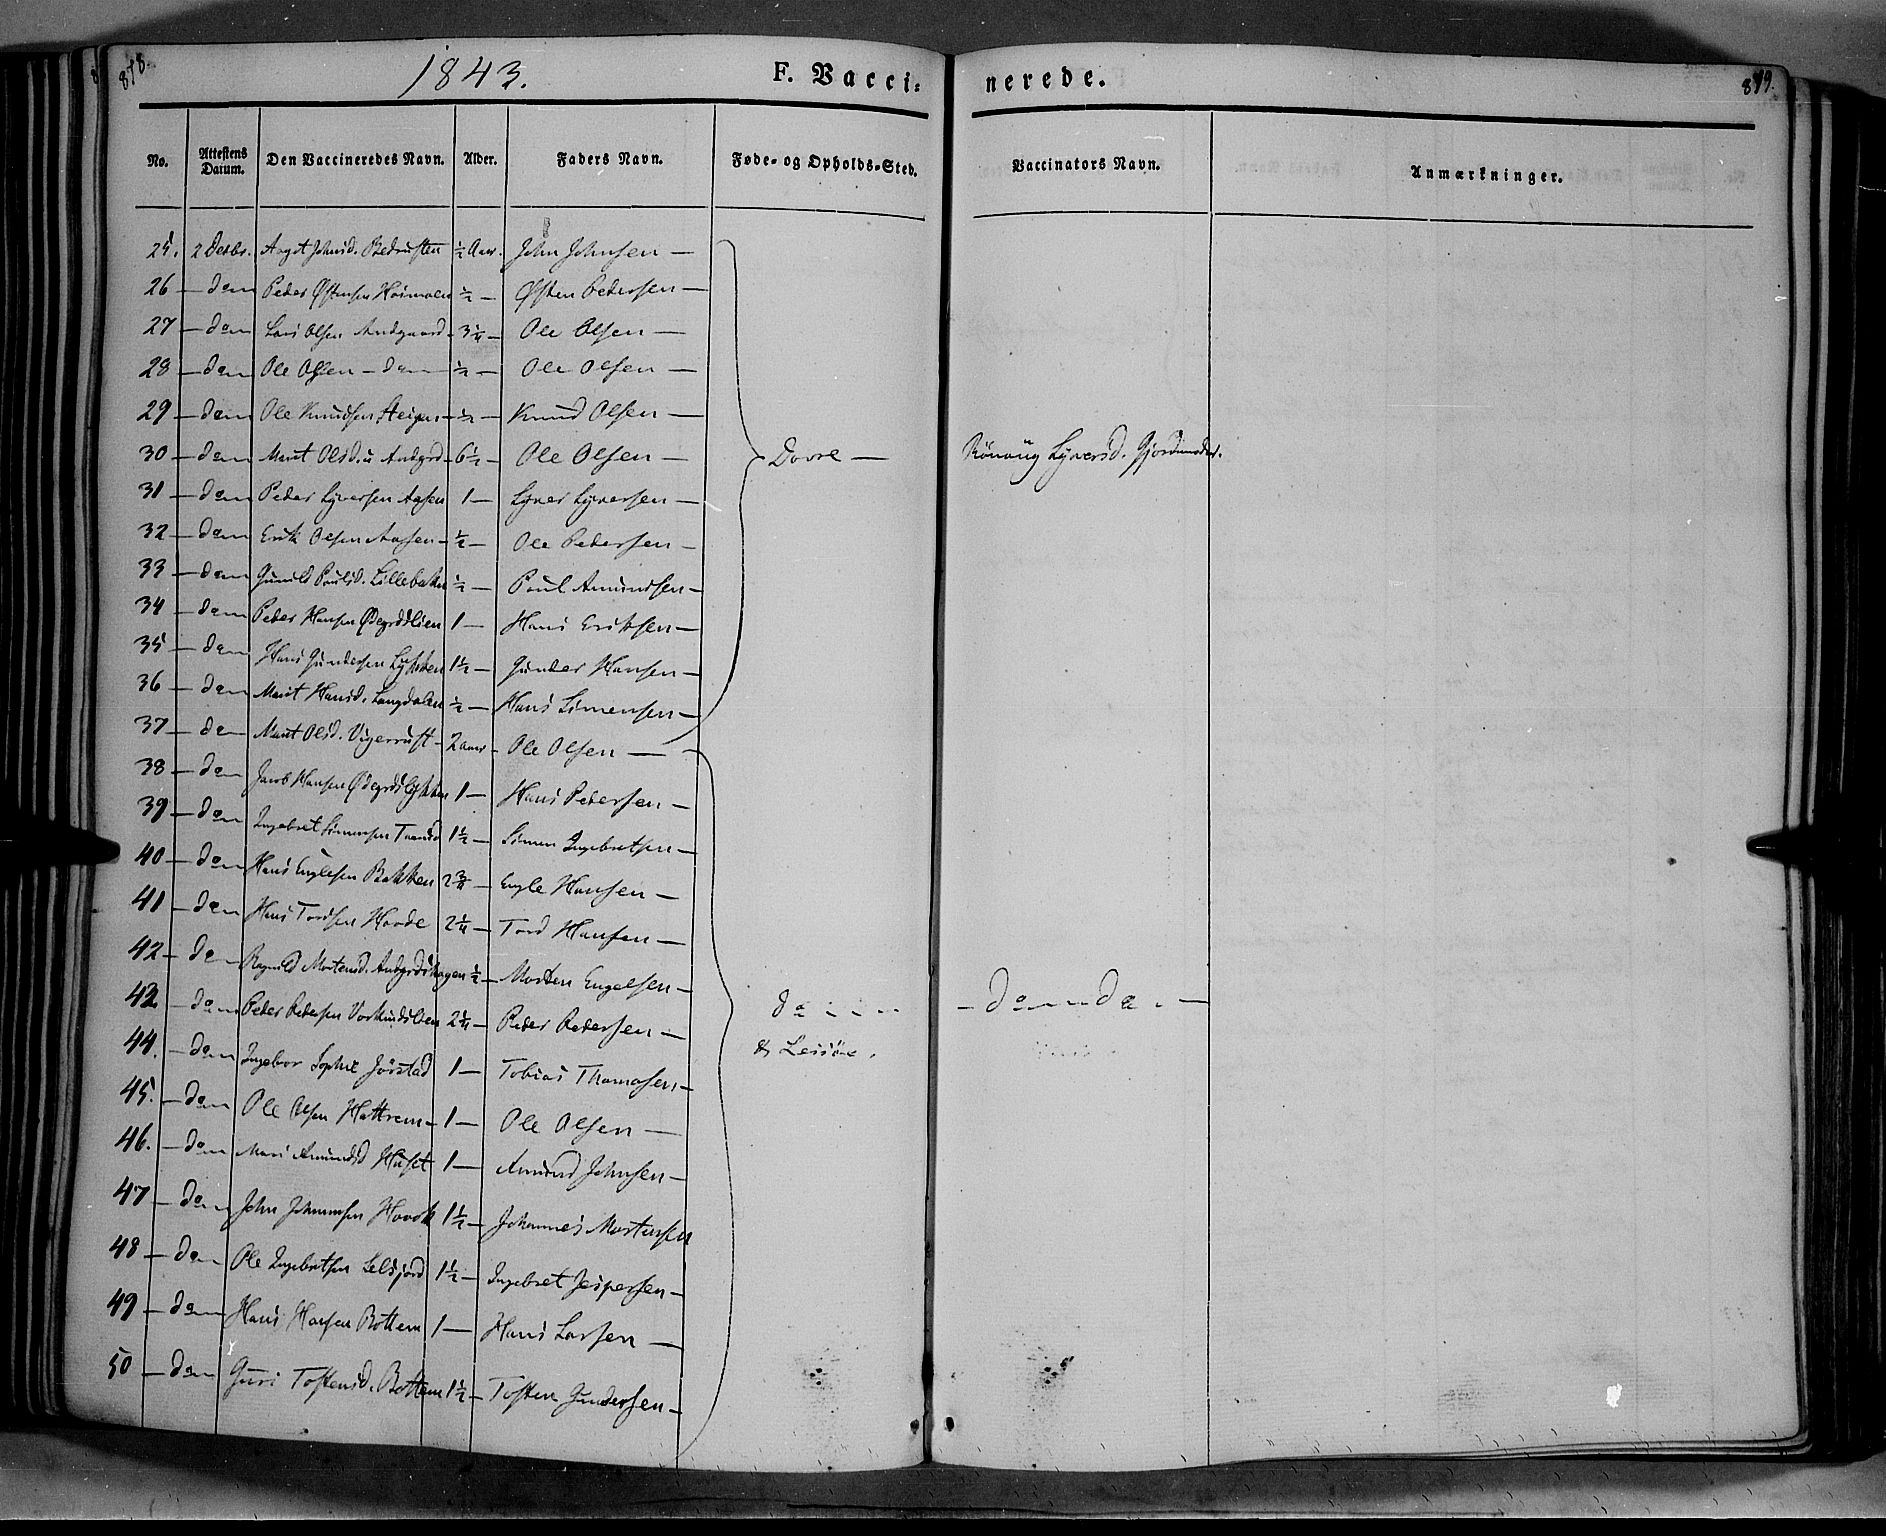 878.
1843.
F. Vacci=
nerede.
879.
No.
Attestens Datum.
Den Vaccineredes Navn.
Alder.
Faders Navn.
Føde- og Opholds-Sted.
Vaccinators Navn.
Anmærkninger.
25. 2 Decbr. Johnsd. ½ Aar. John Johnsen —
26 — dom Peder Østensen ½ — Østen Pedersen —
27 — dom Lars Olsen Andgaard 3¼ — Ole Olsen —
28 — dom Ole Olsen — dom ½ — Ole Olsen —
29 — dom Ole Knudsen ½ — Knud Olsen —
30 — dom Marit Olsd. Andgrd 6½ — Ole Olsen —
Dovre —
Rönnög Lyversd. Gjordmoder.
31 — dom Peder Lyversen Aasen 1 — Lyver Lyversen —
32 — dom Erik Olsen Aasen — ½ — Ole Pedersen —
33 — dom Gunild Poulsd. Lillebakken ½ — Poul Amundsen —
34 — dom Peder Hansen Ødegrdslien 1 — Hans Eriksen —
35 — dom Hans Gundersen Lykken 1½ — Gunder Hansen —
36 — dom Marit Hansd. Langdalen ½ — Hans Simensen —
37 — dom Marit Olsd. Vigerust — 2 aar — Ole Olsen —
38 — dom Jacob Hansen Ødegrdslykken 1 — Hans Pedersen —
39 — dom Ingebret Simensen 1½ — Simen Ingebretsen —
40 — dom Hans Englesen Bakken 2¾ — Engle Hansen —
41 — dom Hans Tordsen Hovde 2¼ — Tord Hansen —
42 — dom Ragnild Mortensd. Andgrdshagen ½ — Morten Engelsen —
42 — dom Peder Pedersen 2¼ — Peder Pedersen —
dom
— dom dom —
& Lessöe.
44. — dom Ingebor Sophie Jörstad 1 — Tobias Thomasen —
45. — dom Ole Olsen Hattrem — 1 — Ole Olsen —
46. — dom Mari Amundsd Huset 1 — Amund Johnsen —
47 — dom John Johannesen 1½ — Johannes Mortensen
48 — dom Ole Ingebretsen 1½ — Ingebret Jespersen —
49 — dom Hans Hansen Bottem 1 — Hans Larsen —
50 — dom Guri Tostensd. Bottem 1½ — Tosten Gundersen —